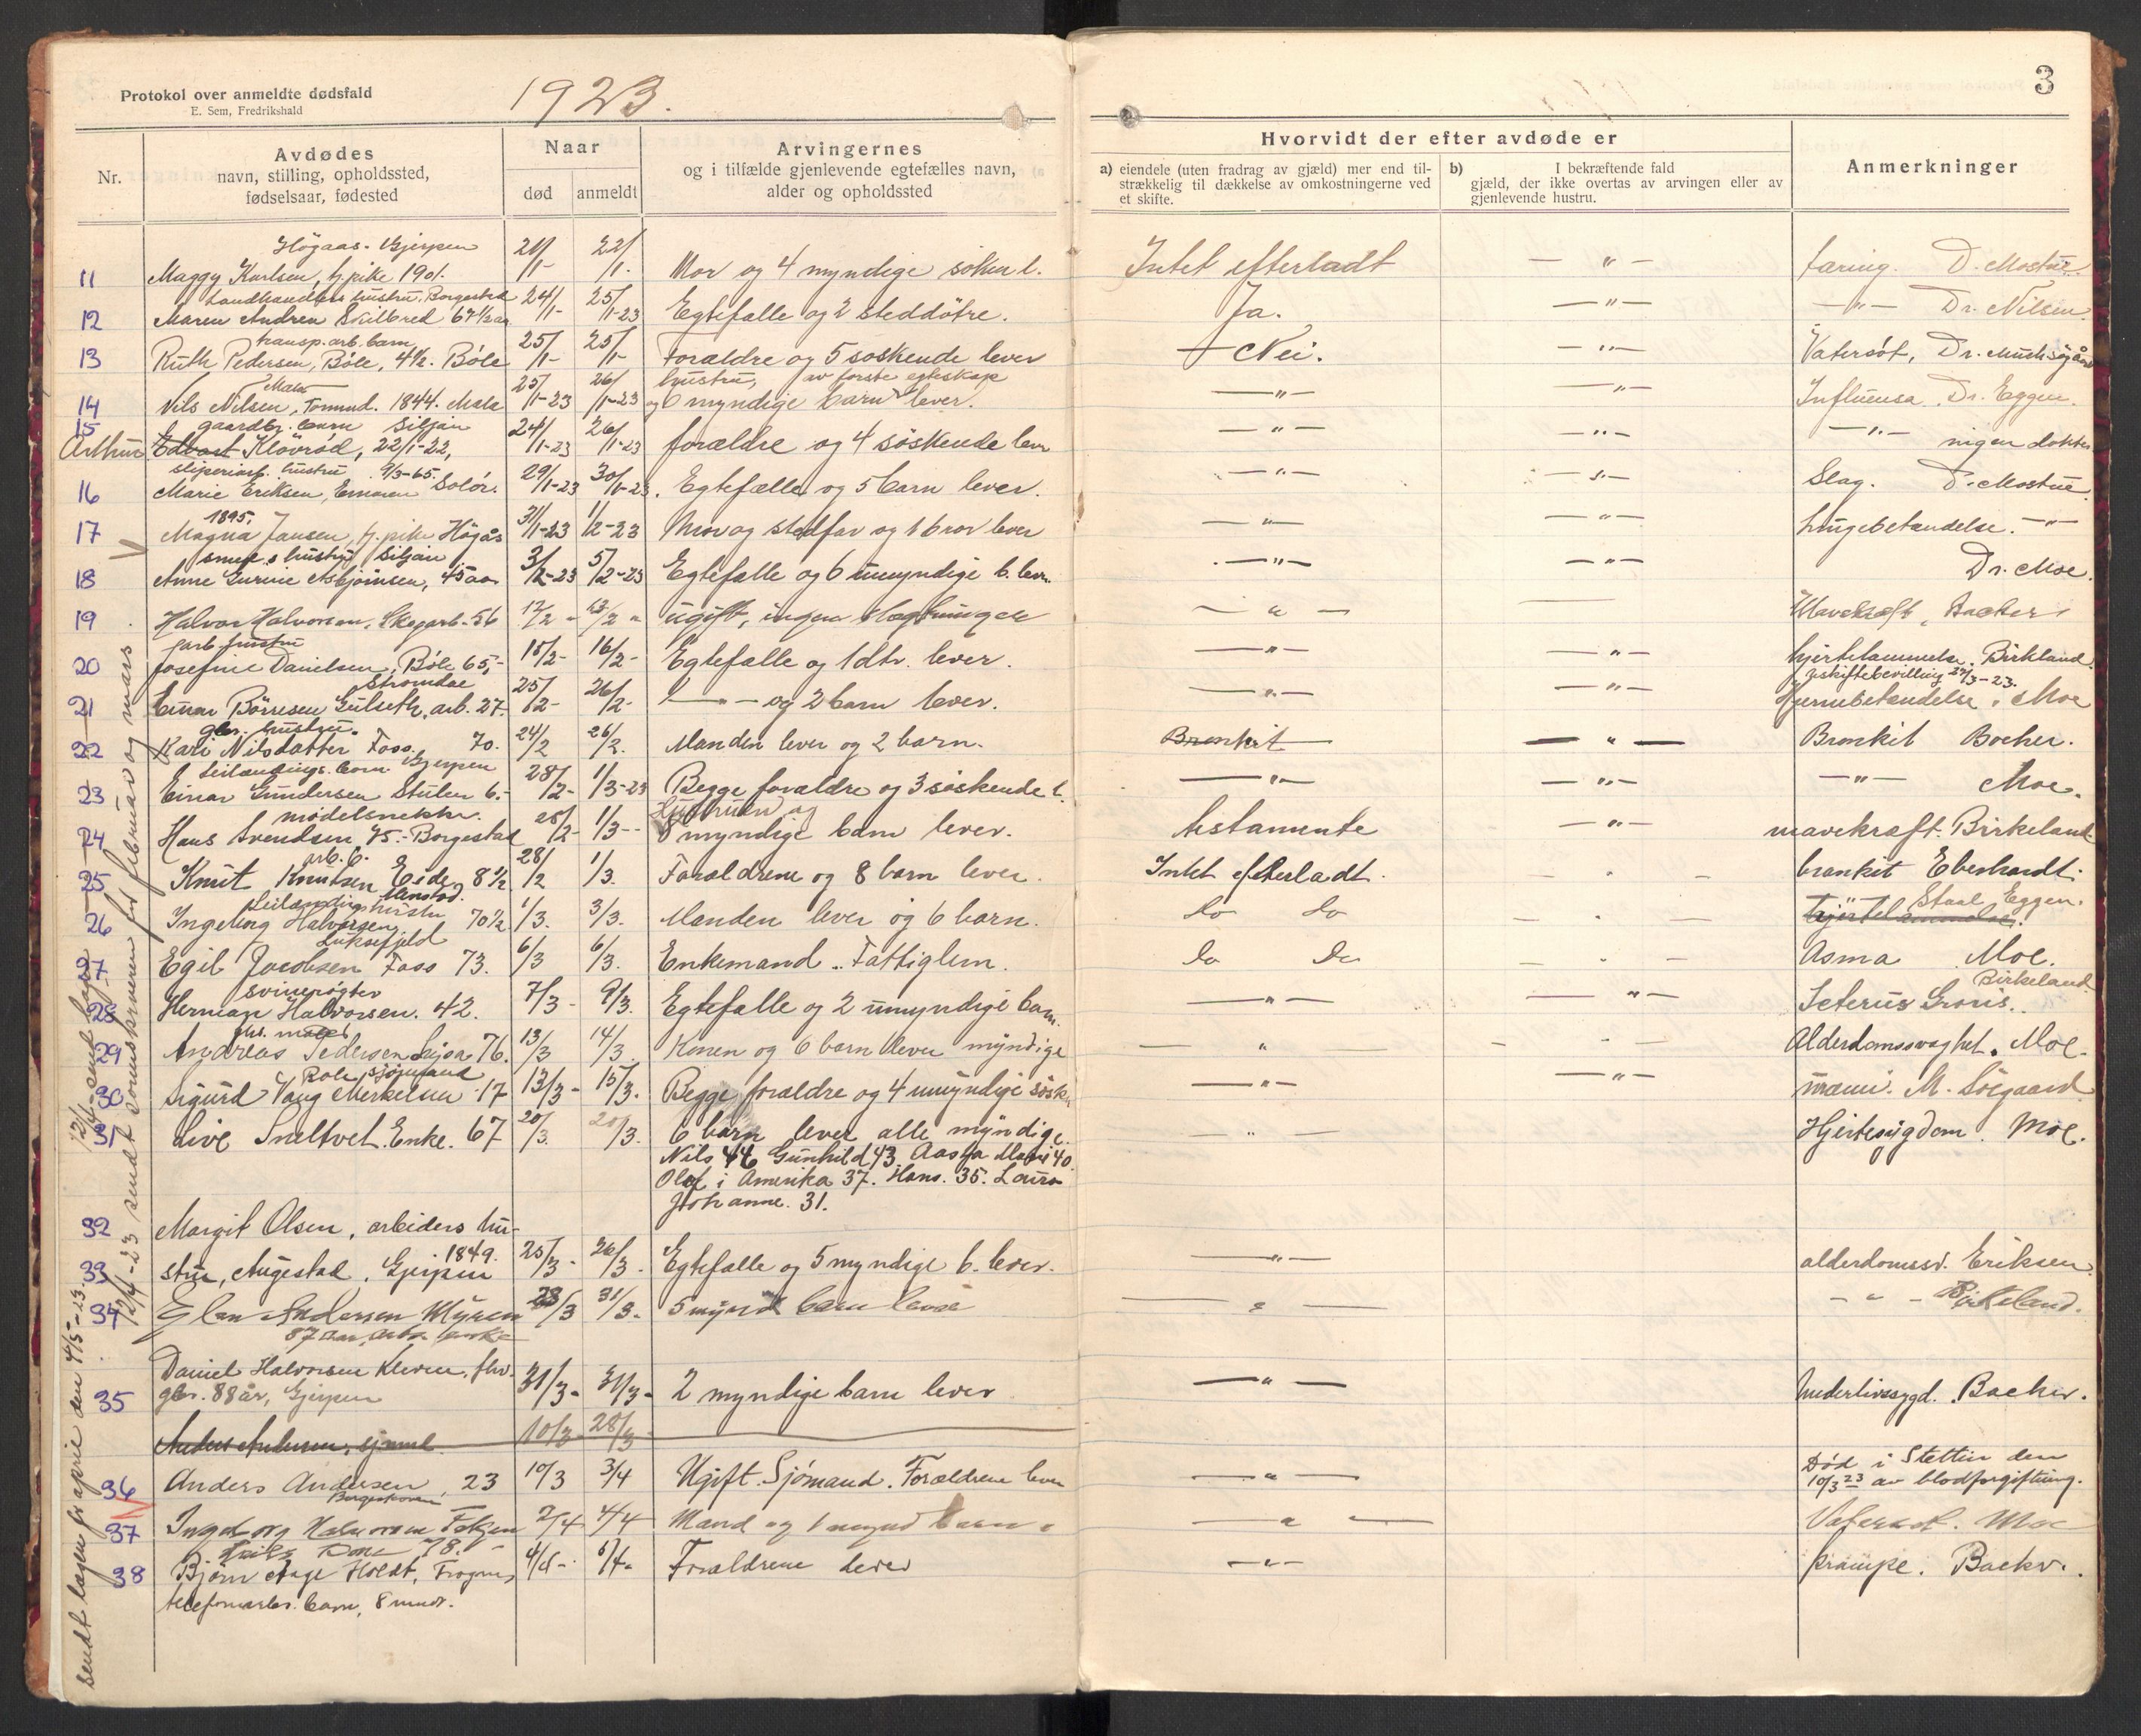 Protokol over anmeldte dødsfald
E. Sem, Fredrikshald
1923.
3
Nr.
Avdødes
navn, stilling, opholdssted,
fødselsaar, fødested
Naar
død
anmeldt
Arvingernes
og i tilfælde gjenlevende egtefælles navn,
alder og opholdssted
Hvorvidt der efter avdøde er
a) eiendele (uten fradrag av gjæld) mer end til-
strækkelig til dækkelse av omkostningerne ved
et skifte.
b) I bekræftende fald
gjæld, der ikke overtas av arvingen eller av
gjenlevende hustru.
Anmerkninger
Högaas. Gjerpen
11 Maggy Karlsen, tj. pike 1901. 21/1- 22/1. Mor og 4 myndige söskn l. Intet efterladt — " — tæring. D. Mostue.
Landhandlers hustru. Borgestad
12 Maren Andrea Skilbred 67 1/2 aar 24/1- 25/1-23 Egtefælle og 2 steddötre. Ja. — " — Dr. Nilsen.
transp. arb. barn
13 Ruth Pedersen, Böle, 4 1/2. Böle 25/1- 25/1- Forældre og 5 søskende lever — Nei. — " — Vatersót, Dr. Munk Søgaard
Mæla hustru, av første egteskap
14 Nils Nilsen, Tömmd. 1844. Mæla 25/1-23 26/1-23 og 6 myndige barn lever. — " — — " — Influensa. Dr. Eggen.
gaardbr. barn Siljan
15 Arthur Edvart Klövröd, 22/1-22, 24/1-23 26/1-23 forældre og 4 söskende lever — " — — " — — " — ingen doktor
sliperiarb. hustru 9/3-65.
16 Marie Eriksen, Solör. 29/1-23 30/1-23. Egtefælle og 5 barn lever. — " — — " — Slag. D. Mostue
1895.
17 Magna Jansen, tj. pike Högås 31/1-23 1/2-23 Mor og stedfar og 1 bror lever — " — — " — lungebetændelse. — " —
smeds hustru Siljan
18 Anne Gurine Asbjörnsen, 45 aar 3/2-23 5/2-23 Egtefælle og 6 umyndige b. lever. — " — — " — Dr. Moe.
19 Halvor Halvorsen, Skogarb. 56 12/2 - 13/2 " ugift, ingen slægtninger — " — — Mavekræft, Backer
garb. hustru
20 Josefine Danielsen, Böle 65,- 15/2- 16/2- Egtefælle og 1 dtr. lever. — " — — " — hjertelammelse. Birkland.
Strömdal uskiftebevilling 27/3-23.
21 Einar Börresen Gulseth, arb. 27. 25/2- 26/2- — " — og 2 barn lever. — " — — " — Hjernebetændelse. Moe
gbr. hustru.
22 Kari Nilsdatter Foss. 70. 24/2 26/2. Manden lever og 2 barn. Bronkit — " — Bronkit Bocher.
Leilændings barn Gjerpen
23 Einar Gundersen Stulen 6.- 28/2- 1/3-23 Begge forældre og 3 søskende l. — " — — " — — " — Moe.
modelsnekker. Hustruen og
24 Hans Svendsen 75.- Borgestad 28/2- 1/3-- 8 myndige barn lever. testamente — " — mavekræft. Birkeland.
arb. b.
25 Knut Knutsen Eide 8 1/2 28/2 1/3. Forældrene og 8 barn lever. Intet efterladt. — " — bronkit Eberhardt.
Leilændings hustru Menstad.
26 Ingeborg Halvorsen, 70 1/2 1/3. 3/3. Manden lever og 6 barn. do do — " — Hjertelammelse. Staal Eggen.
Luksefjeld
27 Egil Jacobsen Foss 73. 6/3 6/3. Enkemand. Fattiglem. do do — " — Asma Moe.
svinerögter Birkeland.
28 Herman Halvorsen. 42. 7/3- 9/3. Egtefælle og 2 umyndige barn. — " — — " — Icterus Gravis.
29 Andreas Pedersen 76. 13/3 14/3. Konen og 6 barn lever myndige — " — — " — Alderdomssvaghet. Moe.
Böle sjömand
30 Sigurd Vaug Merkelsen 17 13/3- 15/3. Begge forældre og 4 umyndige søsken — " — — " — uræmi. M. Söegaard
31 Live Sneltvet. Enke. 67 20/3. 20/3. 6 barn lever alle myndige. — " — Hjertesygdom. Moe.
Nils 46 Gunhild 43. Aasta Marie 40.
Olaf i Amerika 37. Hans. 35. Laura
Johanne. 31.
32 Margit Olsen, arbeiders hu-
33 stru, Augestad. Gjerpen 1849. 25/3- 26/3. Egtefælle og 5 myndige b. lever. — " — alderdomssv. Eriksen.
34 Elen Andersen Myren 28/3 31/3. 5 mynd barn lever — " — — " — Birkeland.
87 aar,
Daniel Halvorsen Kleven, fhv.
35 gbr. 88 år, Gjerpen 31/3- 31/3- 2 myndige barn lever — " — Underlivssygd. Backer.
Anders Andersen, sjömd. 10/3- 28/3
36 Anders Andersen, 23 10/3 3/4 Ugift. Sjómand. Forældrene lever — " — Död i Stettin den
10/3 23 av blodforgiftning.
37 Ingeborg Halvorsen 78. 2/4 4/4 Mand og 1 mynd barn. — " — Vatersot. Moe
38 Björn Aage Holdt, Frogner, 4/4- 6/4- Forældrene lever — " — krampe. Backer.
telefonarb. barn, 8 mndr.
12/4-23 sendt sorenskriveren for februar og mars
sendt lagen for april den 4/5-23.